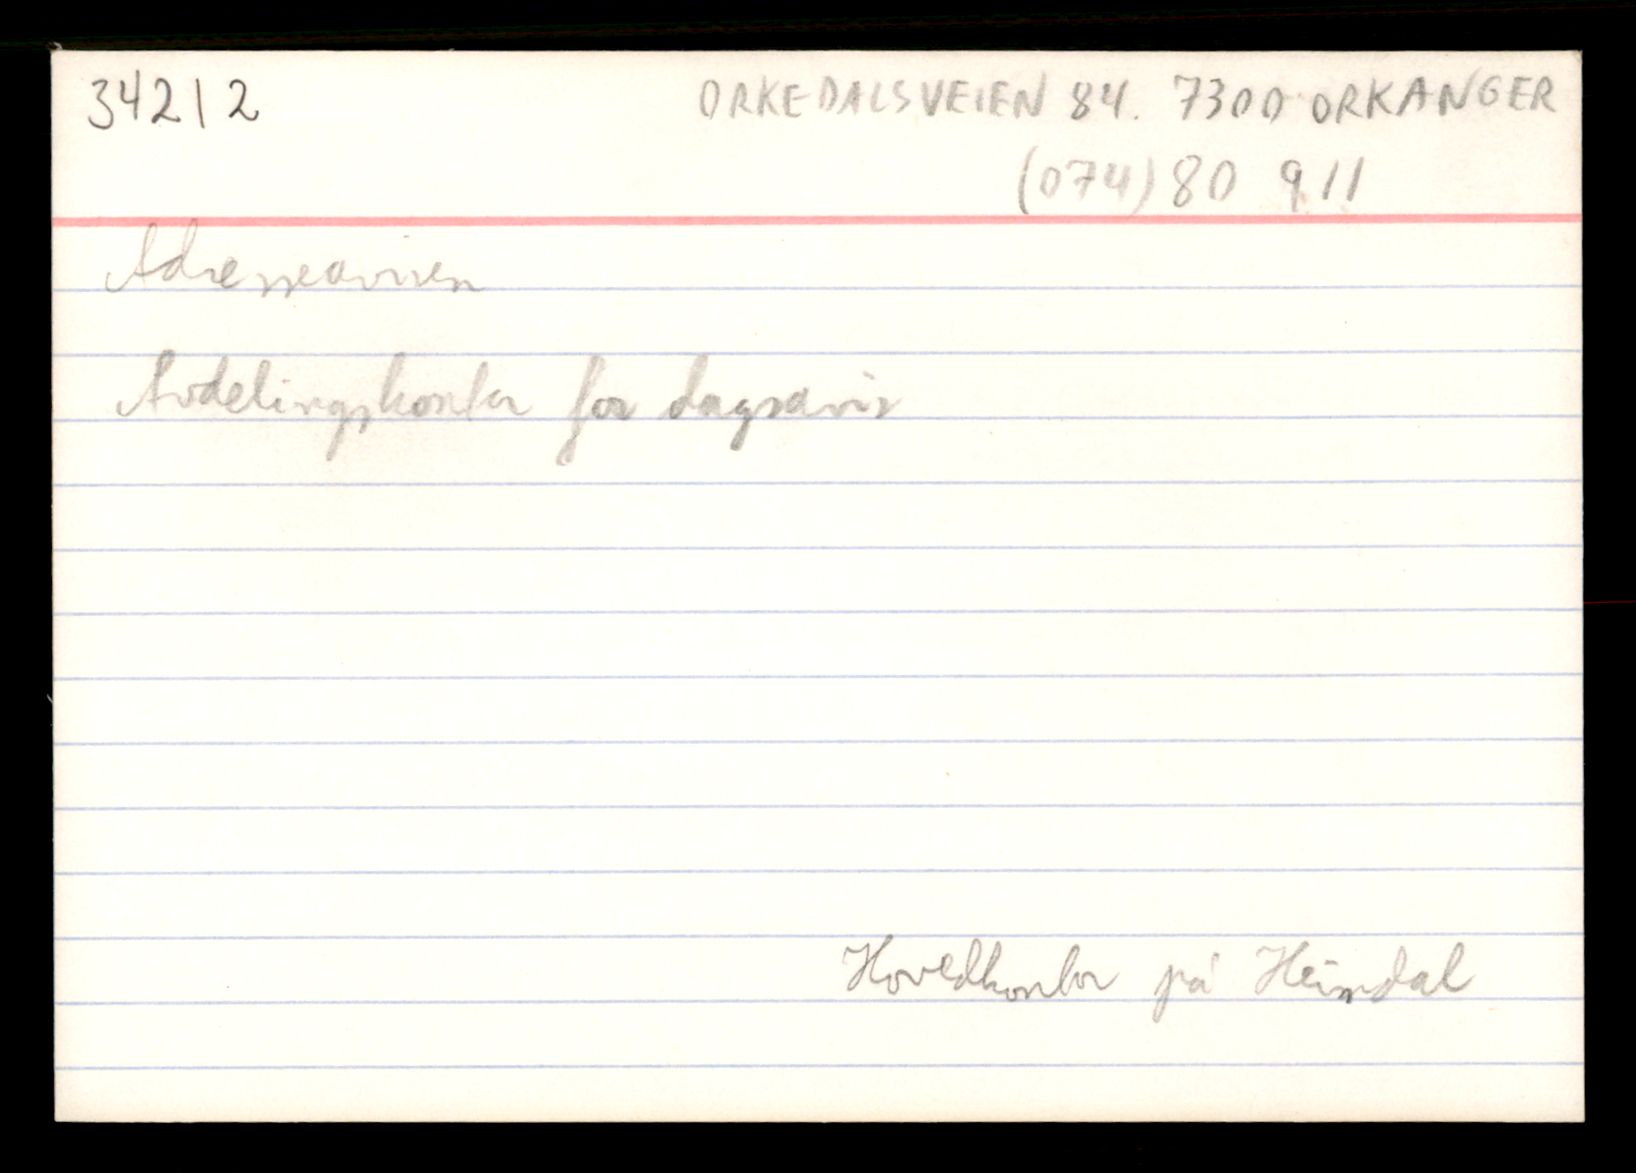 34212
ORKEDALSVEIEN 84. 7300 ORKANGER
(074) 80 911
Adresseavisen
Avdelingskontor for dagsavis
Hovedkontor på Heimdal